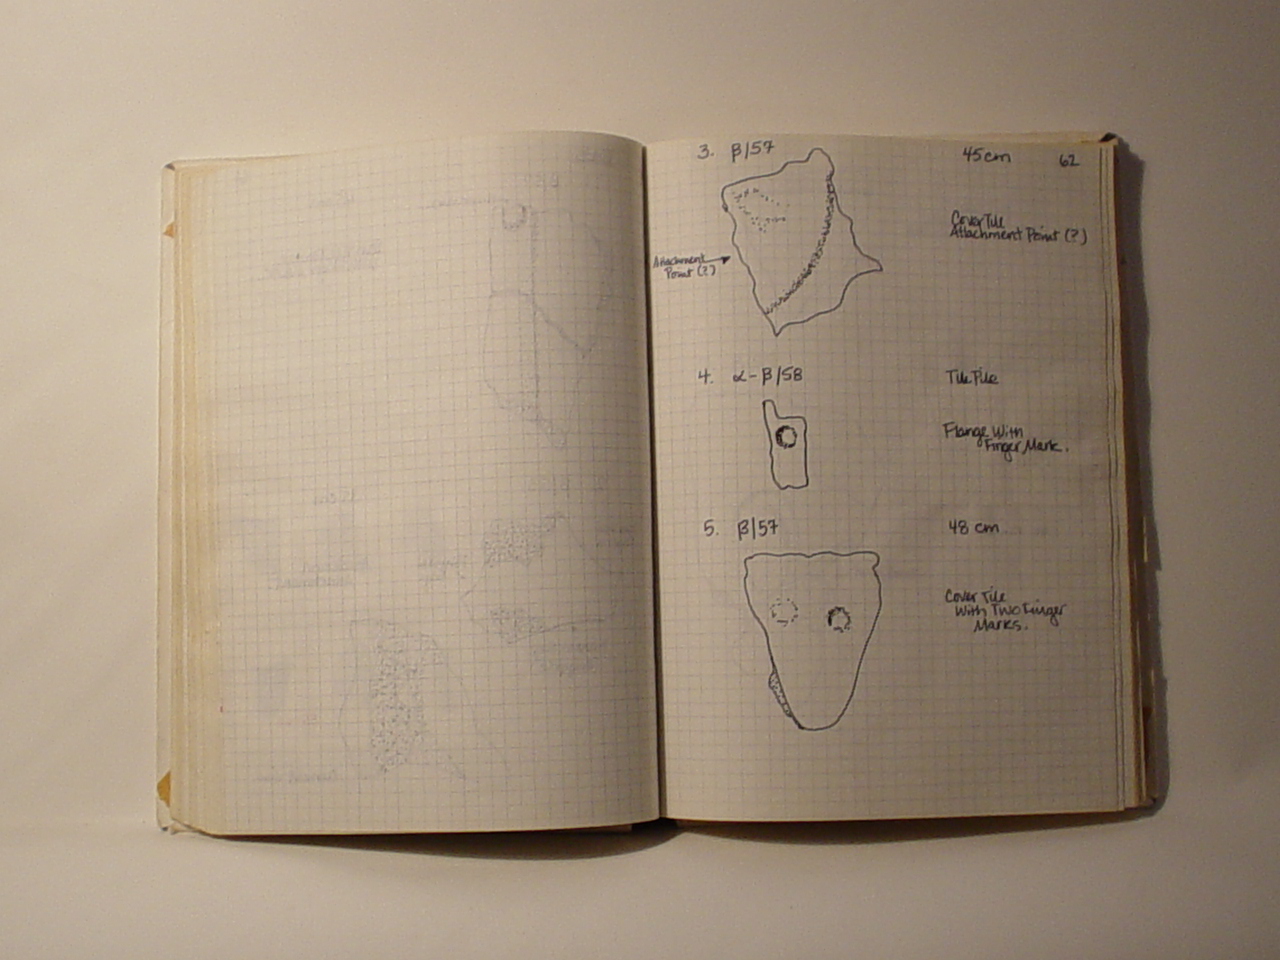 3. β/57 45cm 62
Cover Tile
Attachment Point (?)
Attachment
Point (?)
4. α-β/58 Tile Pile
Flange With
Finger Mark.
5. β/57 48 cm
Cover Tile
With Two Finger
Marks.